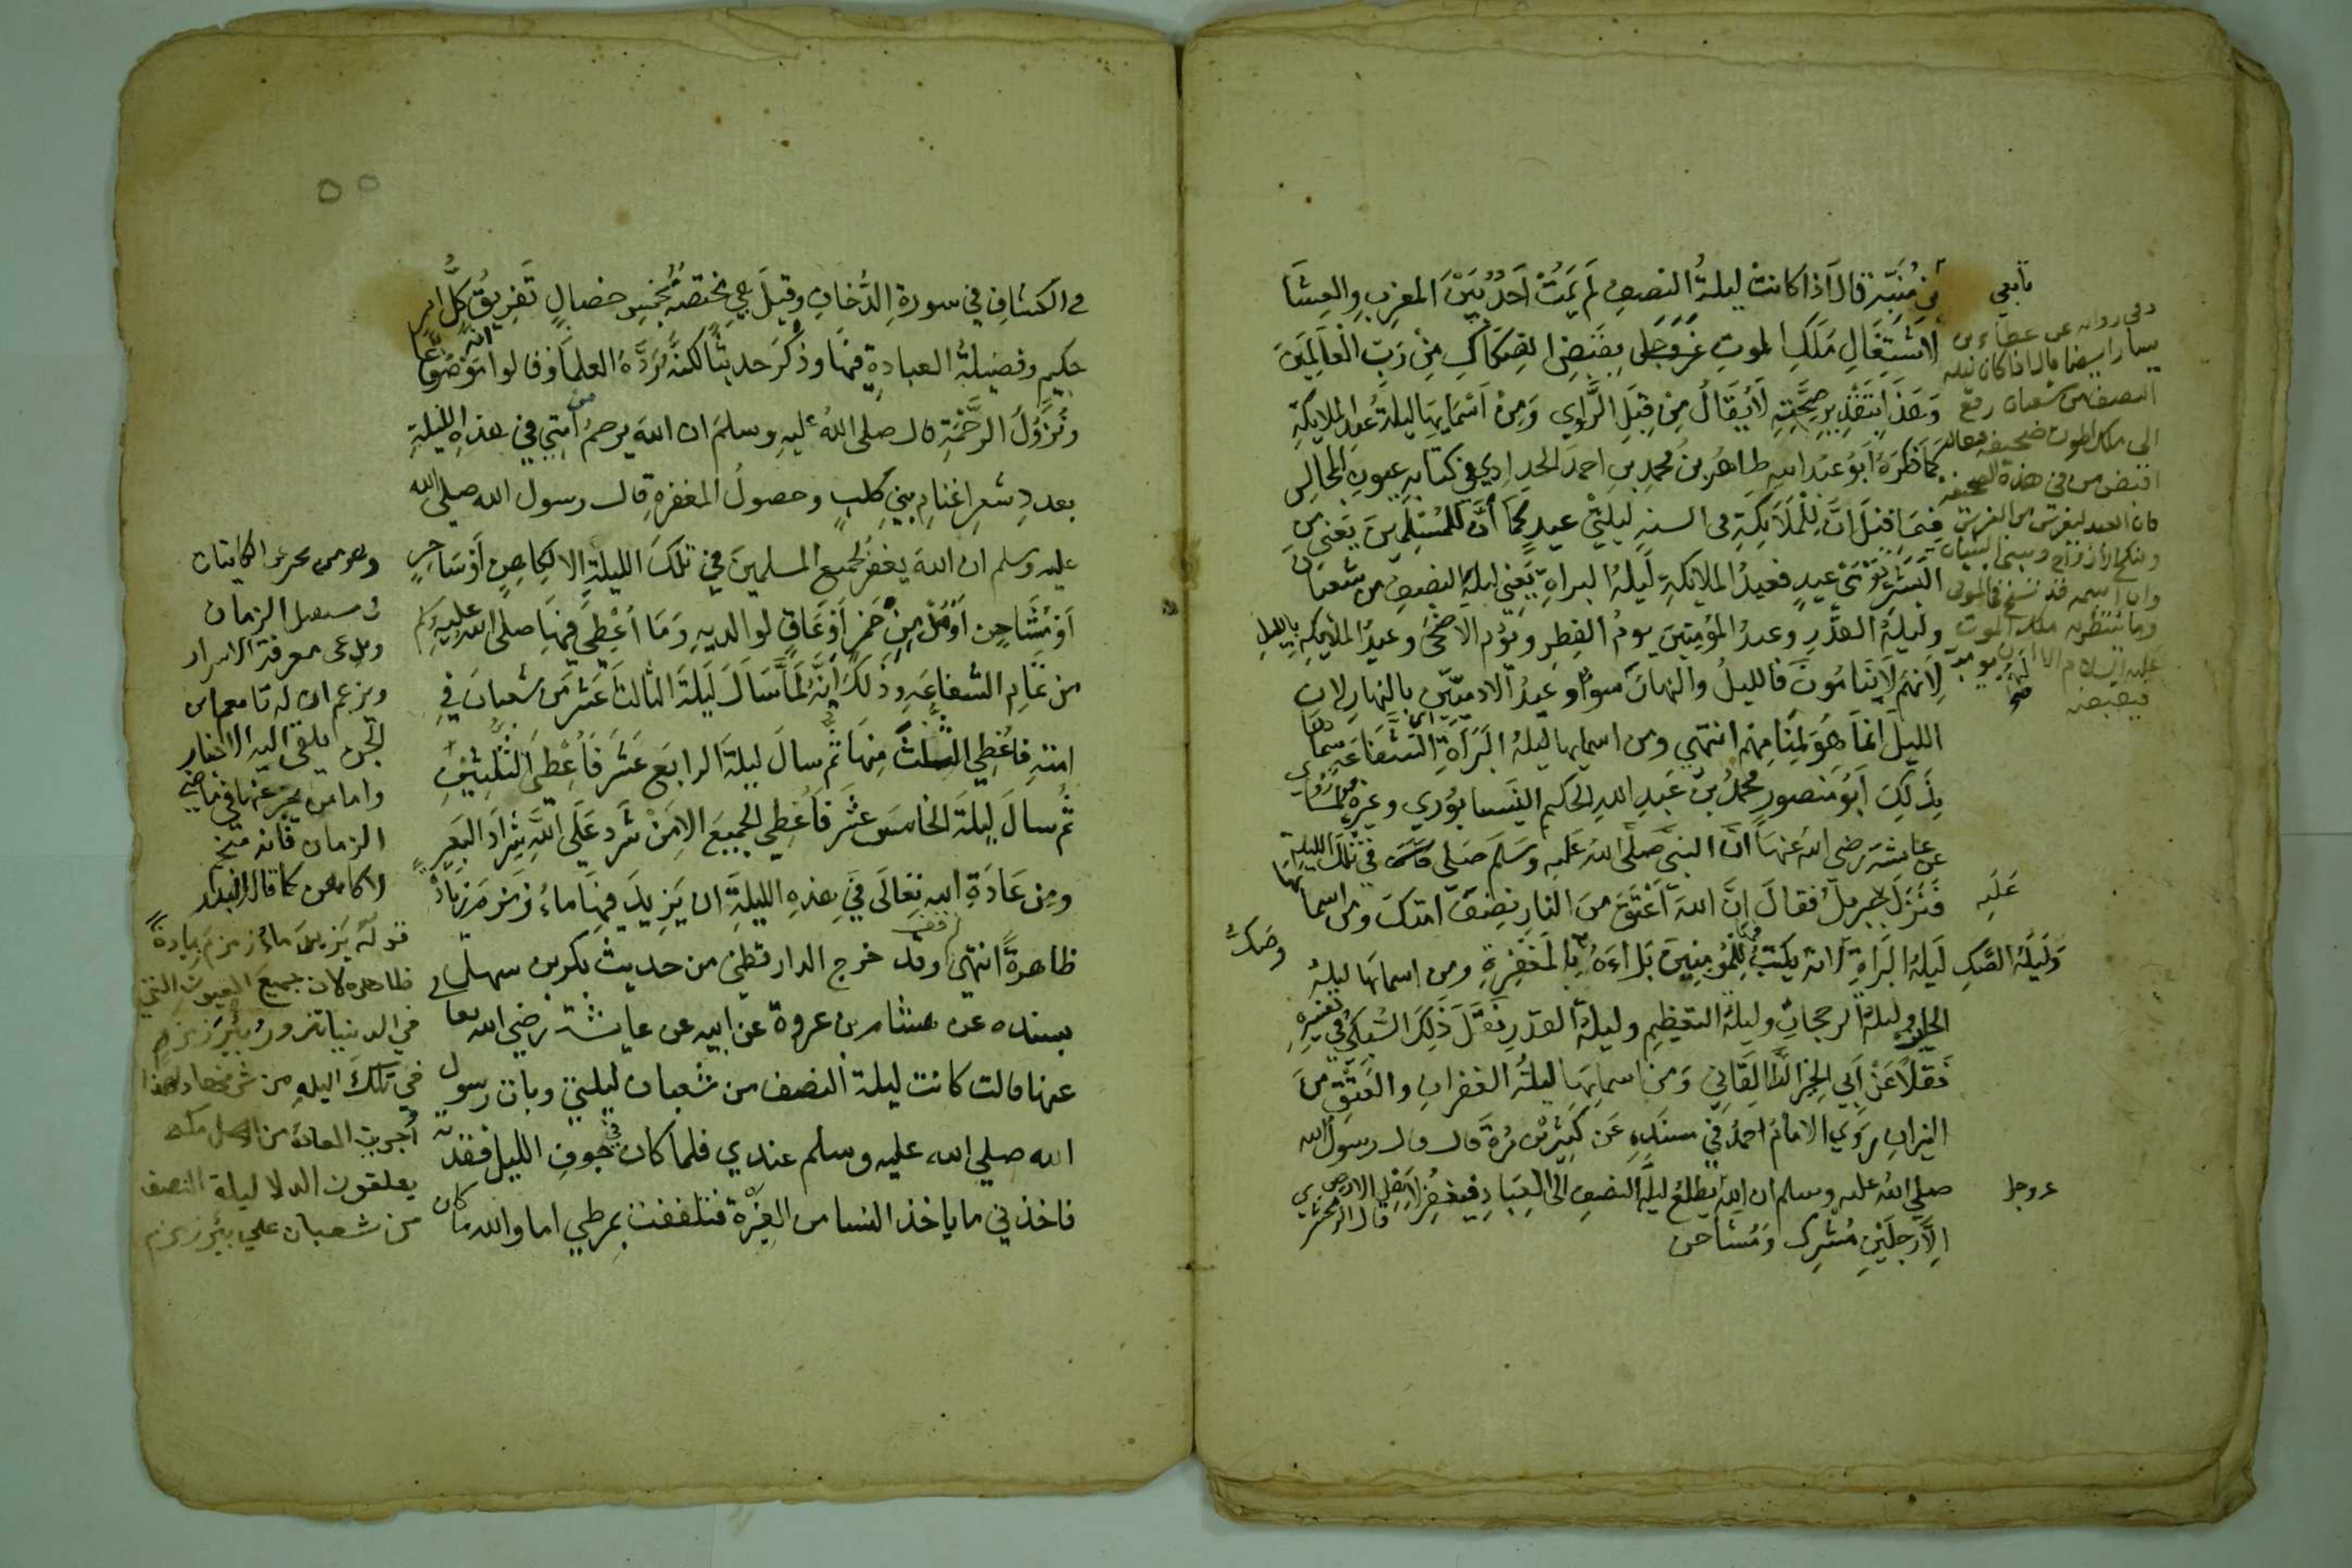 بن منبه قال اذا كانت ليلةُ النصفِ لم يَمُتْ احَدٌ بَيْنَ المغربِ والعِشَا
لاشتِغَالِ مَلَكِ الموتِ بِقَبْضِ الصِكَاكِ مِنْ رَبِّ الْعَالَمِيْنَ
وَهَذَا بتقدير صِحَّتِهِ لَا يُقَالُ مِنْ قِبَلِ الرَّاوِي وَمِنْ اَسْمَايِهَا ليلةُ عيد الملايكةِ
كما ذَكَرَهُ اَبُو عبد الله طاهرُ بنُ محمدِ بنِ احمدَ الحدادِي في كتابه عيونِ المجالسِ
فيما قيل انَّ لِلْمَلَايِكَةِ في السنةِ ليلتَيْ عيدٍ كَمَا أَنَّ لِلْمُسْلِمِيْنَ يَعْنِي مِنَ
البَشَرِ يَوْمَيْ عيدٍ فعيدُ الملايكةِ لَيْلَةُ البراةِ يَعْنِي ليلةَ النصفِ من شعبان
وليلةُ القدْرِ وعيدُ المؤمنِيْنَ يومُ الفِطرِ ويَوْم الاَضْحَى وعيدُ الملايكةِ بالليلِ
لاَنَهُم لَا يَنَامُونَ فالليلُ والنهارُ سواءٌ وعيدُ الآدميِّيْن بالنهارِ لان
الليلَ انمَا هُوَ لِمَنَامِهِم انتهى ومن اسمايها ليلةُ الشَفَاعَةِ سماها
بِذَلِكَ اَبُو مَنصورٍ محمدُ بنُ عَبدِ اللهِ الحكيم النيسابُورِي وغيره لما رُوِي
عن عايشة رضي الله عنها انَّ النبيَّ صلَّى اللهُ عَلَيهِ وسَلَّم صَلى في تِلْكَ الليلةِ
فَنَزَلَ جبريلُ فقالَ اِنَّ اللهَ اَعْتَقَ مِنَ النارِ نِصْفَ امتك ومن اسمايها
وَلَيلَةُ الصَّكِ لَيلةُ البَرَاةِ لانه يكتبُ لِلْمُؤمِنِيْنَ بَرَاءَةٌ بِالْمَغْفِرَةِ ومن اسمايها ليلةُ
وليلةُ الرجحانِ وليلةُ التعْظِيمِ وليلةُ القدْرِ نَقَلَ ذَلِكَ السُّبكيُّ في تفسيرِهِ
نَقلًا عَنْ اَبِي الخيرِ الطَّالقَانِي وَمِن اسمايِهَا ليلةُ الغفرانِ والعِتْقِ مِنَ
النيرانِ رَوَي الامامُ احمدُ في مسندِهِ عَن كَثِيرِ بْن مُرَّة قال قال رسول الله
صلي اللهُ عليهِ وسلم ان الله يطلعُ ليلَةَ النصفِ الى العِبَادِ فيغفِرُ لاهْلِ الارض
الاَّ رجلَيْنِ مُشْرِك وَمُشَاحن
قال الزمخشري
تابعي
وفي رواية عن عطاء بن
يسار ايضا قال اذا كان ليلة
النصف من شعبان رفع
الى ملك الموت صحيفة فيقال
اقبض من في هذه الصحيفة
فان العبد ليغرس الغرس
وينكح الازواج ويبني البنيان
وان اسمه قد نسخ في الموتى
وما ينتظر به ملك الموت
عليه السلام الا ان يومر به
فيقبضه
عَلَيهِ
وصكٌ
عز وجل
في الكشافِ في سورةِ الدُّخانِ وقيلَ هِي مختصةٌ بخمسِ خصالٍ تَفرِيقُ كُلِّ امرٍ
حكيمٍ وفضيلةُ العبادةِ فيها وذَكَرَ حديثًا لكنَّه رَدَّهُ العلماء وقالوا انه مَوْضُوعًا
ونُزُوْلُ الرَّحْمَةِ قال صلى اللهُ عليهِ وسلمَ ان اللهَ يرحمُ من أمتِي في هذه الليلةِ
بعددِ شعرِ اغنامِ بنِي كلبٍ وحصولُ المغفرةِ قال رسول الله صلى الله
عليه وسلم ان اللهَ يغفرُ لجميعِ المسلمينَ في تلكَ الليلةِ الا لكاهنٍ اَوْ سَاحِرٍ
اَوْ مُشَاحِن اَوْ مُدْمِنِ خَمْرٍ اَوْ عَاقٍ لوالديهِ وَمَا أُعْطِيَ فيها صلى الله عليه وسلم
من تمامِ الشفاعَةِ وذَلَكَ اَنَّهُ لَمَّا سَالَ لَيلَةَ الثالثَ عَشَرَ من شعبانَ في
امتهِ فاُعْطِيَ الثُّلُثَ مِنهَا ثمَّ سالَ ليلةَ الرابعَ عَشَرَ فَأُعْطِيَ الثُّلُثَيْنِ
ثُم سالَ ليلةَ الخامسَ عشَرَ فَأُعْطِيَ الجميعَ الا مَنْ شَرَدَ عَلَى اللهِ شِرَادَ البَعِيرِ
ومِن عَادَةِ اللهِ تعَالَى في هذهِ الليلةِ ان يَزِيدَ فيها مَاءُ زَمزمَ زِيَادَةً
ظاهرةً انتهى وقد خرج الدارقطني من حديث بكر بن سهل
بسنده عن هشام بن عروة عن ابيه عن عايشة رضي الله تعا
عنها قالت كانت ليلة النصف من شعبان ليلتي وبات رسول
الله صلي الله عليه وسلم عندي فلما كان في جوفِ الليل فقدته
فاخذني ما ياخذ النسا من الغيرة فتلففت بمرطي اما والله ما كان
وهو من يخبر عن الكاينات
في مستقبل الزمان
ويدعى معرفة الاسرار
ويزعم ان له تابعا من
الجن يلقي اليه الاخبار
واما من يخبر عنها في ماضي
الزمان فانه منجم
لا كاهن كما قال
قوله يَزيدَ مَاءُ زمزمَ زيادةً
ظاهره لان جميعَ العيون التي
في الدنيا تزور بئر زمزم
في تلك الليله
يعلقون الدلا ليلة النصف
من شعبان علي بئر زمزم